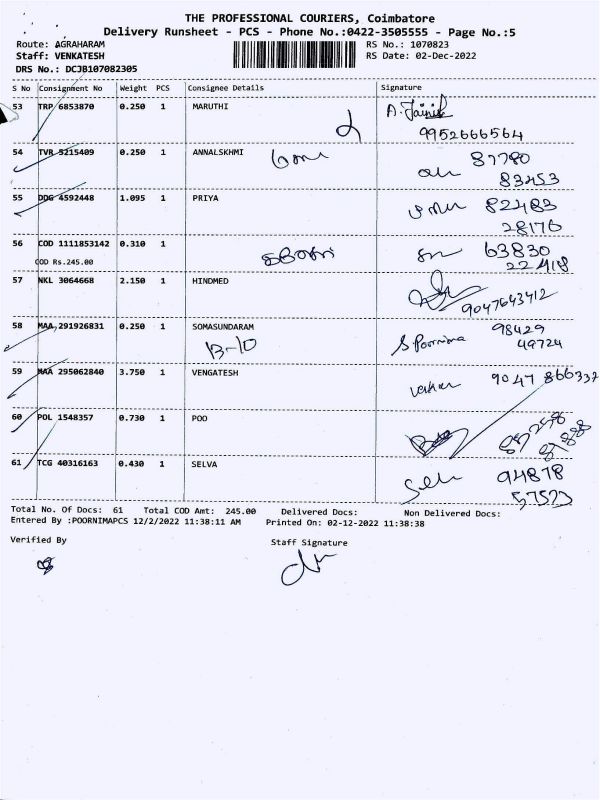 THE PROFESSIONAL COURIERS, Coimbatore
Delivery Runsheet - PCS - Phone No.:0422-3505555 - Page No.:5
Route: AGRAHARAM
RS No.: 1070823
Staff: VENKATESH
RS Date: 02-Dec-2022
DRS No.: DCJB107082305
S No Consignment No Weight PCS Consignee Details Signature
53 TRP 6853870 0.250 1 MARUTHI
9952666564
54 TVR 5215409 0.250 1 ANNALSKHMI 87780
83453
55 DDG 4592448 1.095 1 PRIYA 82483
28176
56 COD 1111853142 0.310 1 63830
COD Rs.245.00 22418
57 NKL 3064668 2.150 1 HINDMED
9047643412
58 MAA 291926831 0.250 1 SOMASUNDARAM 98429
B-10 S Poornima 49724
59 MAA 295062840 3.750 1 VENGATESH 9047 866337
60 POL 1548357 0.730 1 POO
61 TCG 40316163 0.430 1 SELVA 94878
57523
Total No. Of Docs: 61 Total COD Amt: 245.00 Delivered Docs: Non Delivered Docs:
Entered By :POORNIMAPCS 12/2/2022 11:38:11 AM Printed On: 02-12-2022 11:38:38
Verified By
Staff Signature